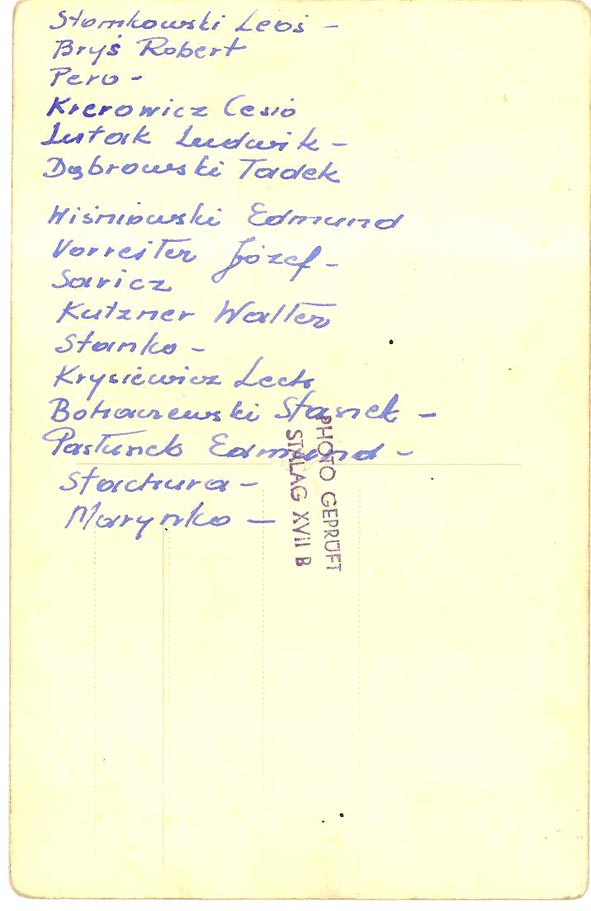 Słomkowski Leoś -
Bryś Robert
Pero -
Krerowicz Cesio
Lutak Ludwik -
Dąbrowski Tadek
Wiśniowski Edmund
Vorreiter Józef -
Saricz
Kutzner Walter
Stanko -
Krysiewicz Lech
Staszek -
Edmund -
Stachura -
Marynko -
PHOTO GEPRÜFT
STALAG XVII B